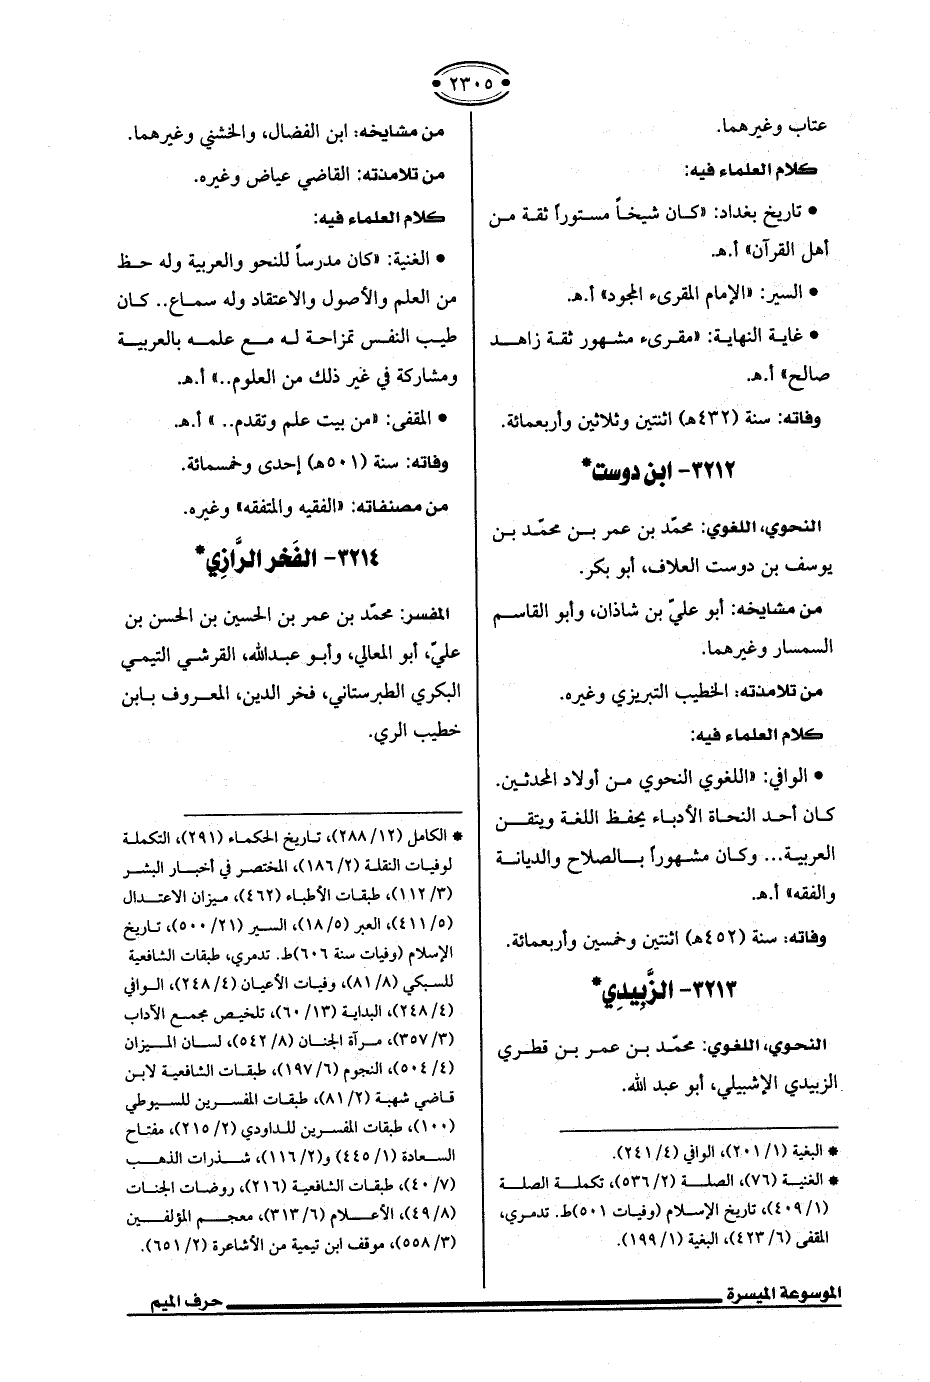 ٢٣٠٥
عتاب وغيرهما.
كلام العلماء فيه:
• تاريخ بغداد: «كان شيخاً مستوراً ثقة من
أهل القرآن» أ.هـ.
• السير: «الإمام المقرىء المجود» أ.هـ.
• غاية النهاية: «مقرىء مشهور ثقة زاهد
صالح» أ.هـ.
وفاته: سنة (٤٣٢هـ) اثنتين وثلاثين وأربعمائة.
٣٢١٢- ابن دوست*
النحوي، اللغوي: محمّد بن عمر بن محمّد بن
يوسف بن دوست العلاف، أبو بكر.
من مشايخه: أبو عليّ بن شاذان، وأبو القاسم
السمسار وغيرهما.
من تلامذته: الخطيب التبريزي وغيره.
كلام العلماء فيه:
• الوافي: «اللغوي النحوي من أولاد المحدثين.
كان أحد النحاة الأدباء يحفظ اللغة ويتقن
العربية... وكان مشهوراً بالصلاح والديانة
والفقه» أ.هـ.
وفاته: سنة (٤٥٢هـ) اثنتين وخمسين وأربعمائة.
٣٢١٣- الزَّبِيدِي*
النحوي، اللغوي: محمّد بن عمر بن قطري
الزبيدي الإشبيلي، أبو عبد الله.
* البغية (٢٠١/١)، الوافي (٢٤١/٤).
* الغنية (٧٦)، الصلة (٥٣٦/٢)، تكملة الصلة
(٤٠٩/١)، تاريخ الإسلام (وفيات ٥٠١)ط. تدمري،
المقفى (٤٢٣/٦)، البغية (١٩٩/١).
من مشايخه: ابن الفضال، والخشني وغيرهما.
من تلامذته: القاضي عياض وغيره.
كلام العلماء فيه:
• الغنية: «كان مدرساً للنحو والعربية وله حظ
من العلم والأصول والاعتقاد وله سماع.. كان
طيب النفس تمزاحة له مع علمه بالعربية
ومشاركة في غير ذلك من العلوم..» أ.هـ.
• المقفى: «من بيت علم وتقدم..» أ.هـ.
وفاته: سنة (٥٠١هـ) إحدى وخمسمائة.
من مصنفاته: «الفقيه والمتفقه» وغيره.
٣٢١٤- الفَخر الرَّازِي*
المفسر: محمّد بن عمر بن الحسين بن الحسن بن
عليّ، أبو المعالي، وأبو عبدالله، القرشي التيمي
البكري الطبرستاني، فخر الدين، المعروف بابن
خطيب الري.
* الكامل (٢٨٨/١٢)، تاريخ الحكماء (٢٩١)، التكملة
لوفيات النقلة (١٨٦/٢)، المختصر في أخبار البشر
(١١٢/٣)، طبقات الأطباء (٤٦٢)، ميزان الاعتدال
(٤١١/٥)، العبر (١٨/٥)، السير (٥٠٠/٢١)، تاريخ
الإسلام (وفيات سنة ٦٠٦)ط. تدمري، طبقات الشافعية
للسبكي (٨١/٨)، وفيات الأعيان (٢٤٨/٤)، الوافي
(٢٤٨/٤)، البداية (٦٠/١٣)، تلخيص مجمع الآداب
(٣٥٧/٣)، مرآة الجنان (٥٤٢/٨)، لسان الميزان
(٥٠٤/٤)، النجوم (١٩٧/٦)، طبقات الشافعية لابن
قاضي شهبة (٨١/٢)، طبقات المفسرين للسيوطي
(١٠٠)، طبقات المفسرين للداودي (٢١٥/٢)، مفتاح
السعادة (٤٤٥/١) و(١١٦/٢)، شذرات الذهب
(٤٠/٧)، طبقات الشافعية (٢١٦)، روضات الجنات
(٤٩/٨)، الأعلام (٣١٣/٦)، معجم المؤلفين
(٥٥٨/٣)، موقف ابن تيمية من الأشاعرة (٦٥١/٢).
الموسوعة الميسرة
حرف الميم